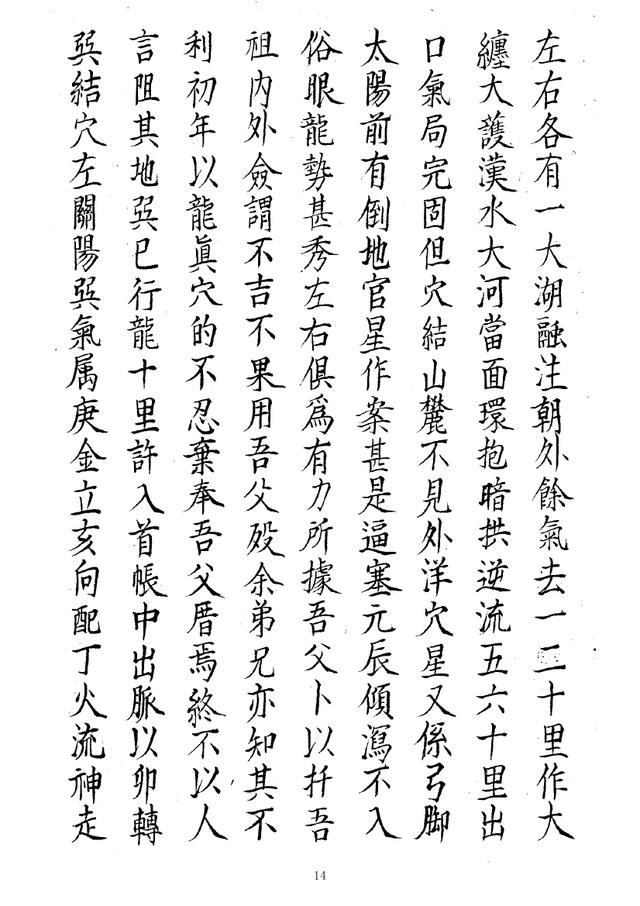 左右各有一大湖融注朝外餘氣去一二十里作大
纏大護漢水大河當面環抱暗拱逆流五六十里出
口氣局完固但穴結山麓不見外洋穴星又係弓脚
太陽前有倒地官星作案甚是逼塞元辰傾瀉不入
俗眼龍勢甚秀左右俱爲有力所據吾父卜以扦吾
祖内外僉謂不吉不果用吾父殁余弟兄亦知其不
利初年以龍眞穴的不忍棄奉吾父厝焉終不以人
言阻其地巽巳行龍十里許入首帳中出脈以卯轉
巽結穴左關陽巽氣属庚金立亥向配丁火流神走
14